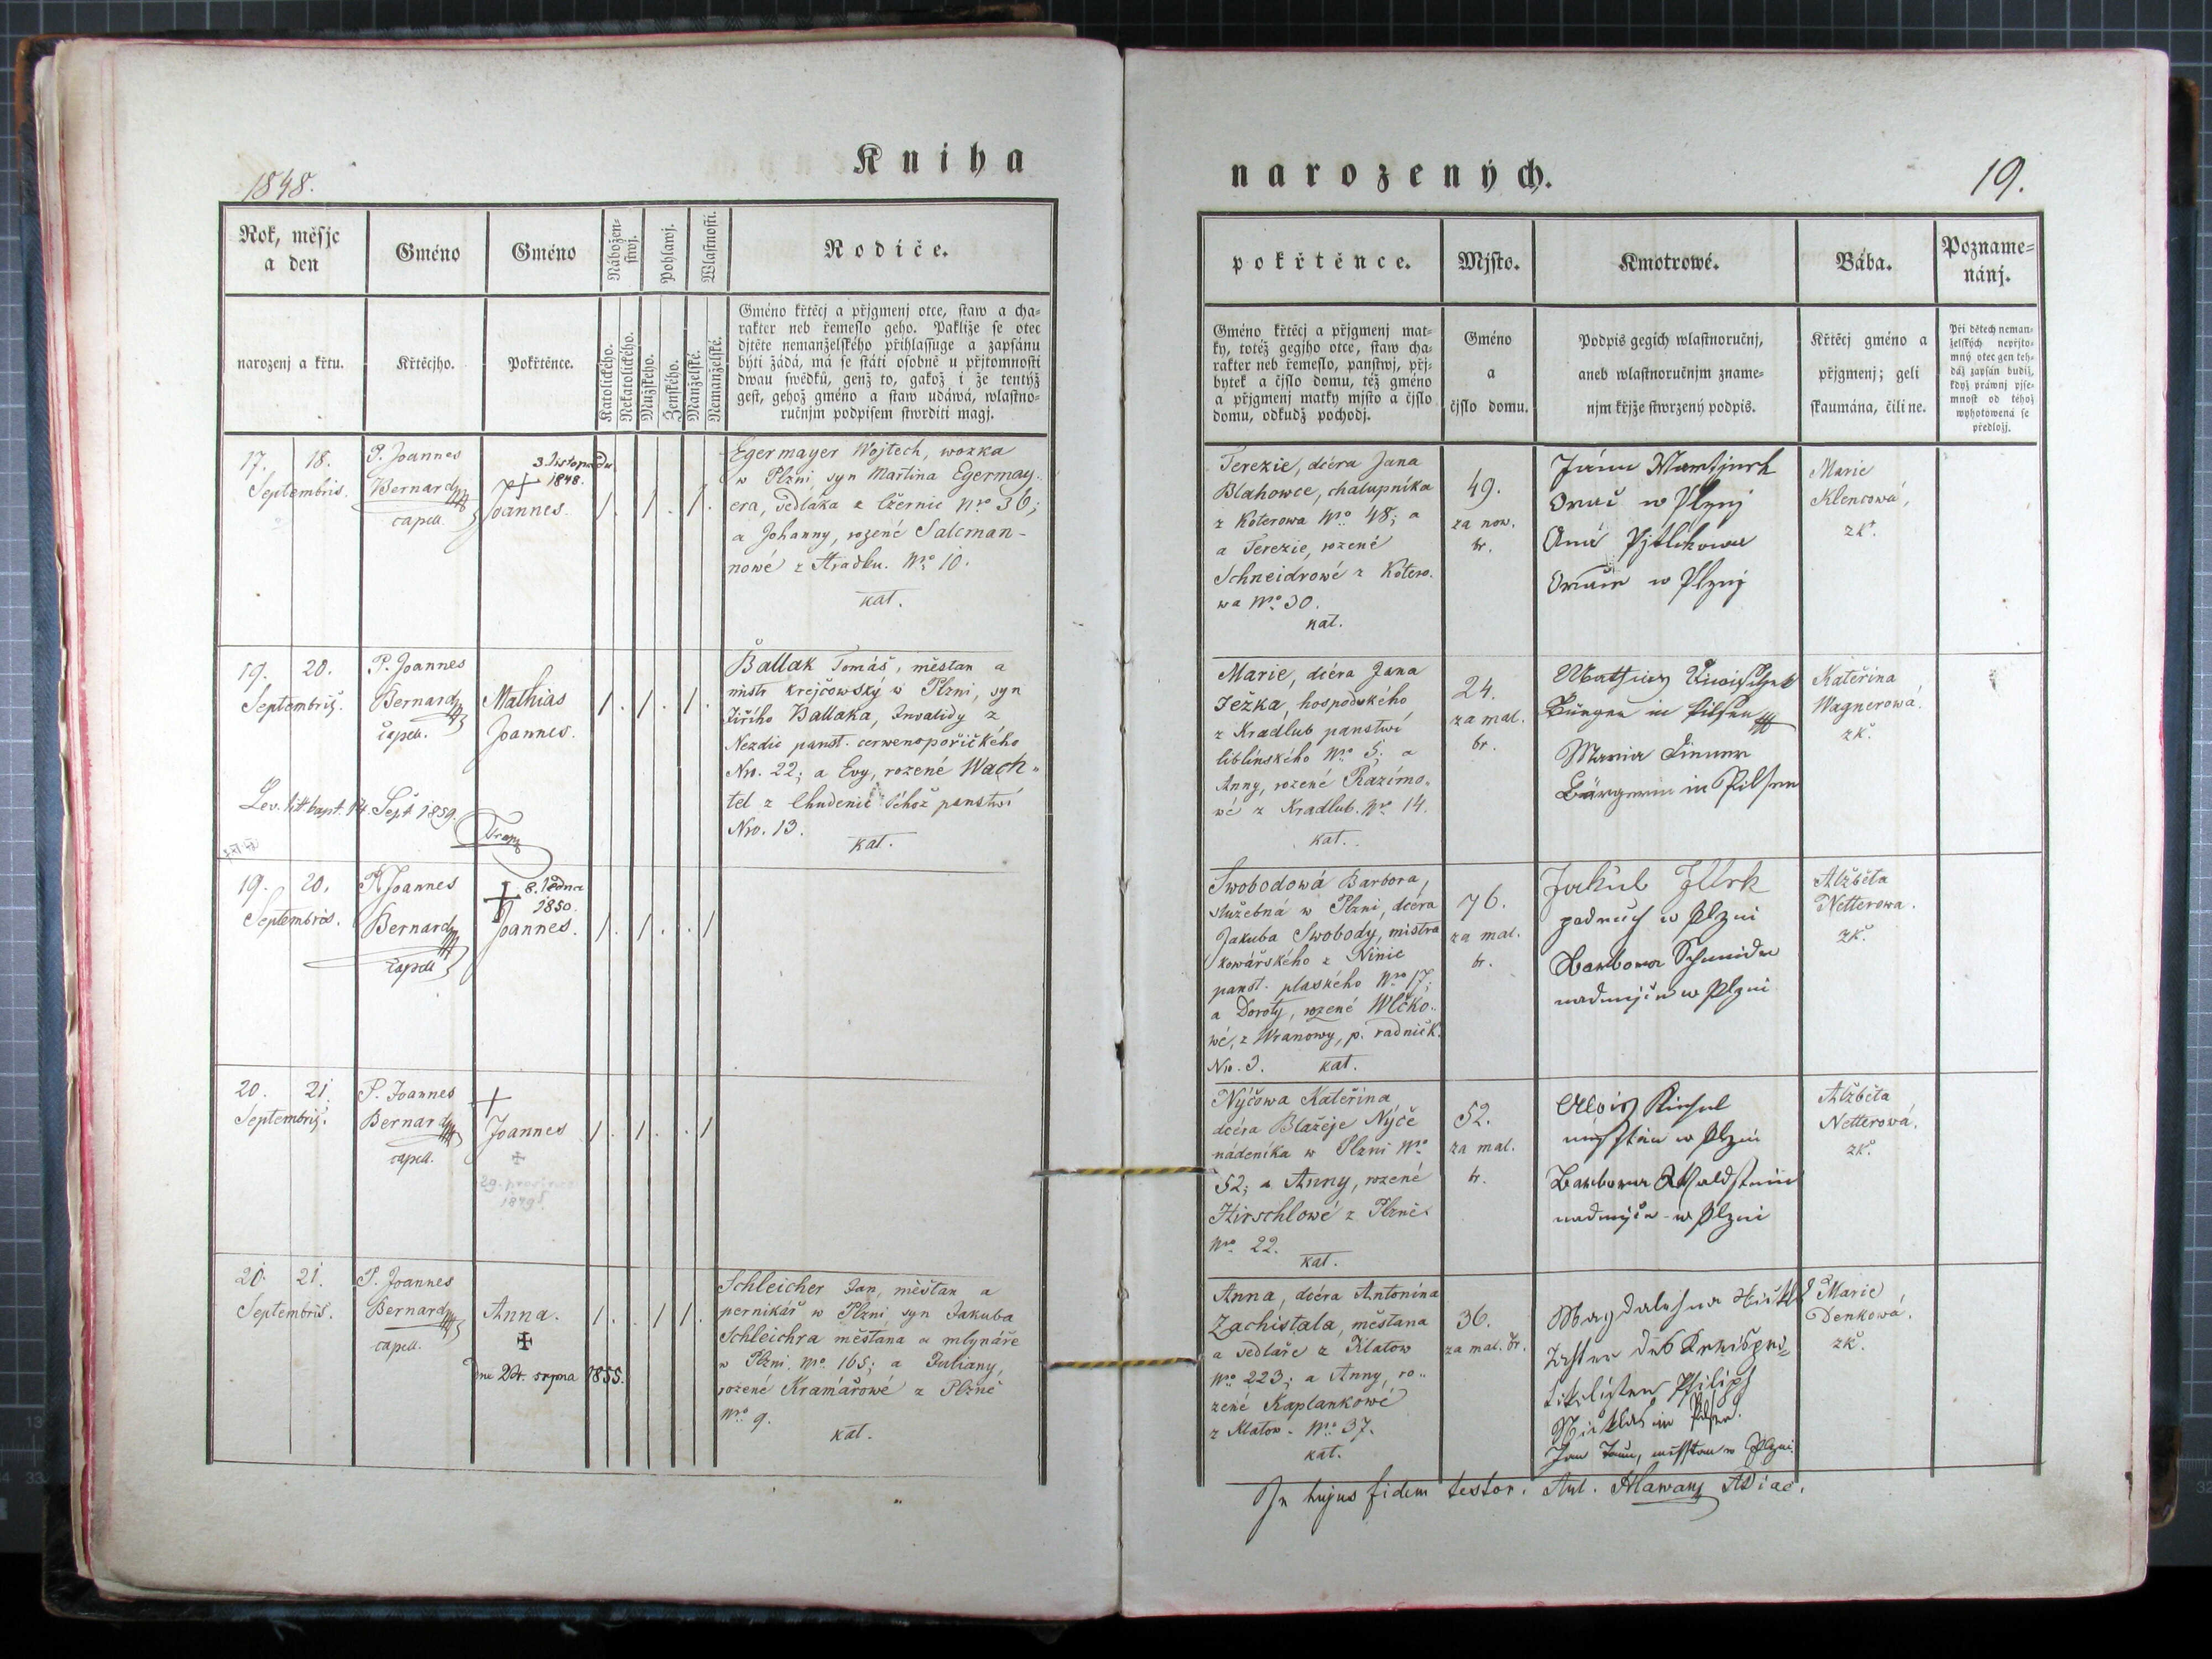 1848.
Kniha
Rok, měsjc
a den
Gméno
Gméno
Nábožen-
stwj.
Pohlawj.
Wlastnosti.
Rodiče.
narozenj a křtu.
Křtěcjho.
Pokřtěnce.
Katolického.
Nekatolického.
Mužského.
Ženského.
Manželské.
Nemanželské.
Gméno křtěcj a přjgmenj otce, staw a cha-
rakter neb řemeslo geho. Pakliže se otec
djtěte nemanželského přihlassuge a zapsánu
býti žádá, má se státi osobně u přjtomnosti
dwau swědků, genž to, gakož i že tentýž
gest, gehož gméno a staw udáwá, wlastno-
ručnjm podpisem stwrditi magj.
17. 18.
Septembris.
P. Joannes
Bernard
capell.
3. listopadu
1848.
Joannes.
Egermayer Wojtech, wozka
w Plzni, syn Martina Egermay-
era, sedláka z Černic Nro 36;
a Johanny, rozené Salcman-
nowé z Hradku. Nro 10.
kat.
19. 20.
Septembris.
P. Joannes
Bernard
capell.
Mathias
Joannes.
Ballak Tomáš, měštan a
mistr krejčowský w Plzni, syn
Jiřího Ballaka, Invalidy z
Nezdic panst. cerwenopořičkého
Nro. 22; a Evy, rozené Wach-
tel z Chudenic téhož panstwí
Nro. 13.
kat.
Lev. litt. bapt. 14. Sept 1859.
19. 20.
Septembris.
P. Joannes
Bernard
capell
8. ledna
1850.
Joannes.
20. 21.
Septembris.
P. Joannes
Bernard
capell.
Joannes
20. 21.
Septembris.
P. Joannes
Bernard
capell.
Anna.
dne 24. srpna 1855.
Schleicher Jan, měštan a
pernikář w Plzni, syn Jakuba
Schleichra měštana a mlynáře
w Plzni, Nro 165; a Juliany,
rozené Kramářowé z Plzně
Nro 9.
kat.
narozených.
19.
pokřtěnce.
Mjsto.
Kmotrowé.
Bába.
Pozname-
nánj.
Gméno křtěcj a přjgmenj mat-
ky, totéž gegjho otce, staw cha-
rakter neb řemeslo, panstwj, přj-
bytek a čjslo domu, též gméno
a přjgmenj matky mjsto a čjslo
domu, odkudž pochodj.
Gméno
a
čjslo domu.
Podpis gegich wlastnoručnj,
aneb wlastnoručnjm zname-
njm křjže stwrzený podpis.
Křtěcj gméno a
přjgmenj; geli
skaumána, čili ne.
Při dětech neman-
želských nepřjto-
mný otec gen teh-
dáž zapsán budiž,
když práwnj pjse-
mnost od téhož
wyhotowená se
předložj.
Terezie, dcéra Jana
Blahowce, chalupníka
z Koterowa Nro 48; a
a Terezie, rozené
Schneidrowé z Kotero-
wa Nro 30.
kat.
49.
za now.
br.
w Plznj
w Plznj
Marie
Klencowá,
zk.
Marie, dcéra Jana
Ježka, hospodského
z Kradlub panstwí
liblínského Nro 5; a
Anny, rozené Razímo-
wé z Kradlub. Nro 14.
kat.
24.
za mal.
br.
Bürger in Pilsen
Maria
Bürgerin in Pilsen
Kateřina
Wagnerowá.
zk.
Swobodowá Barbora,
služebná w Plzni, dcéra
Jakuba Swobody, mistra
kowářského z Ninic
panst. plaského Nro 17;
a Doroty, rozené Wlčko-
wé, z Wranowy, p. radničk.
Nro. 3. kat.
76.
za mal.
br.
Jakub
podruh w Plzni
Barbora
w Plzni
Alžběta
Netterowa.
zk.
Nýčowa Kateřina,
dcéra Blažeje Nýče
nádeníka w Plzni Nro
52; a Anny, rozené
Hirschlowé z Plzně
Nro 22.
kat.
52.
za mal.
br.
Alois
w Plzni
Barbora Waldstein
w Plzni
Alžběta
Netterowá.
zk.
Anna, dcéra Antonína
Zachistala, měštana
a sedláře z Klatow
Nro 223; a Anny, ro-
zené Kaplankowé
z Klatow. Nro 37.
kat.
36.
za mal. br.
Magdalehna
in Pilsen.
Jan
w Plzni.
Marie
Denkowá.
zk.
In hujus fidem testor. Ant. Hlawan